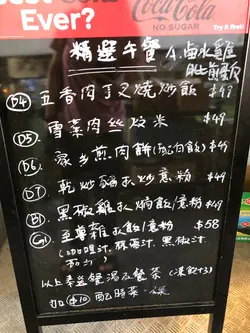 Ever?
Coca-Cola
NO SUGAR
Try it first!
精選午餐
A. 鹵水雞
D4 五香肉丁叉燒炒飯 $49
D5. 雪菜肉丝炆米 $49
D6. 家乡煎肉餅(配白飯) $49
D7 乾炒雞扒炒意粉 $49
B1. 黑椒雞扒焗飯/意粉 $49
G1. 至尊雜扒飯/意粉 $58
(咖哩汁.蒜蓉汁.黑椒汁.
以上套餐湯及餐茶(凍飲+3)
加 $10 配時菜一碟